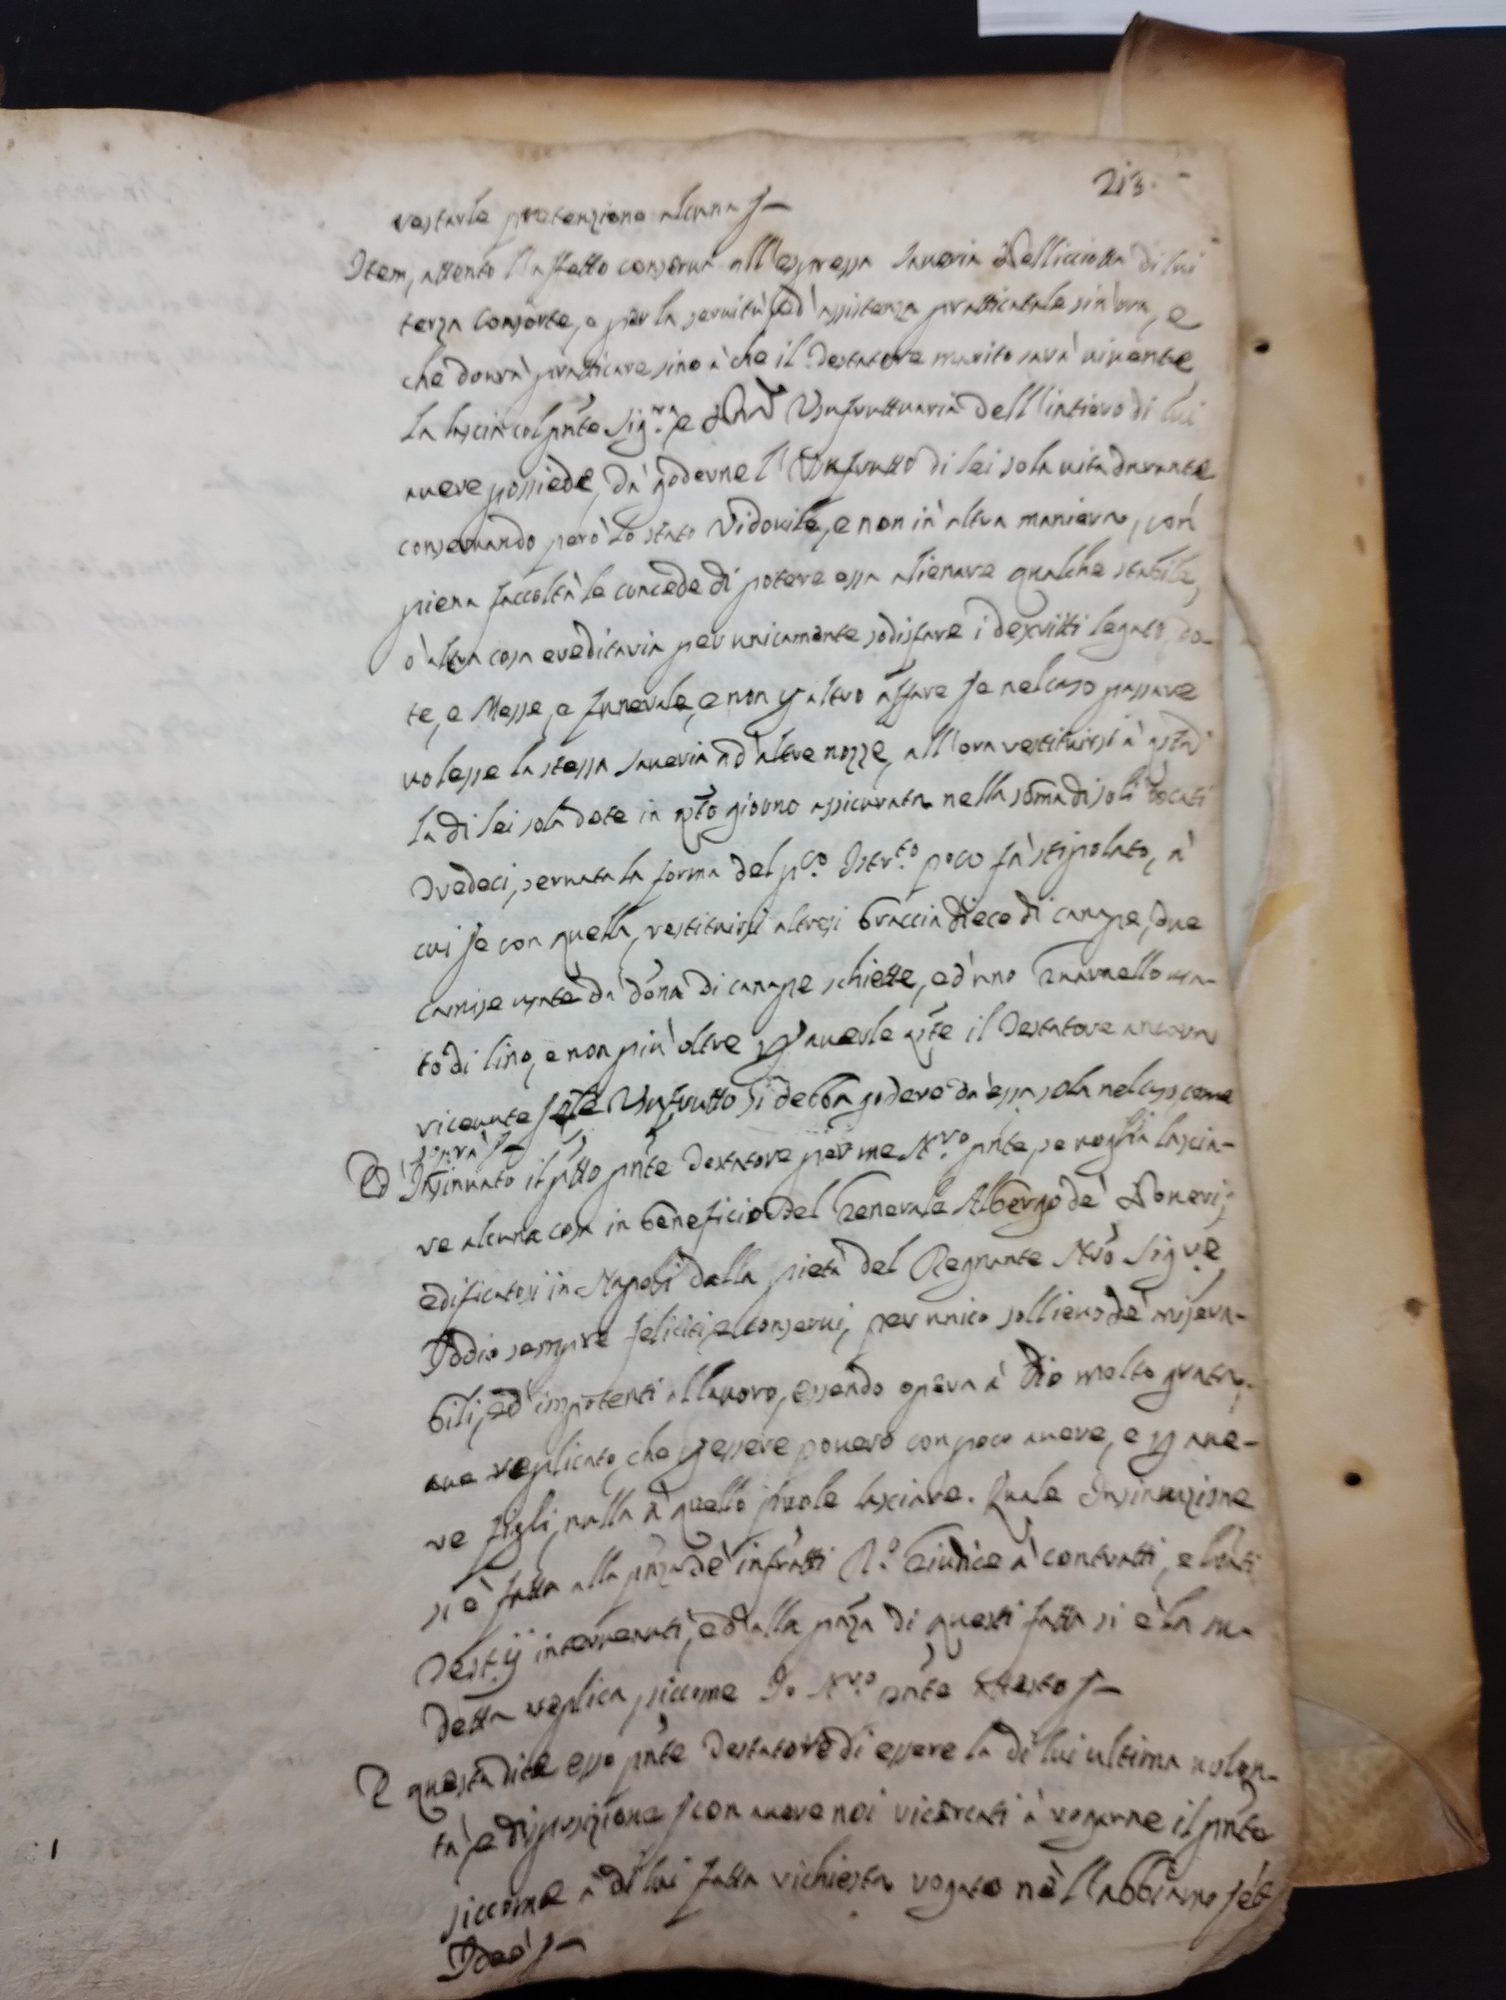 213.
restarle pretenzione alcuna
Item, attento l'affetto conserva all'espressa Saveria Pellicciotta di lui
terza Consorte, e per la servitù, ed' assistenza pratticatale sin'ora, e
che dovrà pratticare sino à che il Testatore marito sarà vivente
La lascia col pñte Sig.ra e Usufruttuaria dell'intiero di lui
avere possiede, dà goderne l'Usufrutto di lei sola vita durante
conservando però lo stato Vidovile, e non in altra maniera, con
piena faccoltà le concede di potere essa alienare qualche stabile,
ò altra cosa ereditaria per unicamente sodisfare i descritti legato, do-
te, e Messe, e funerale, e non altro affare se nel caso passare
volesse la stessa Saveria ad' altre nozze, all'ora restituirsi à
La di lei sola dote in giorno assicurata nella somã di soli docati
dvedeci, servata la forma del Istr.to poco fà stipolato, à
cui se con quella, restituirsi altresi braccia diece di canape, due
camise usate dà doña di canape schiette, ed' uno Guarnello usa-
to di lino, e non più oltre averle il Testatore ancora
ricevute Usufrutto si debba godere dà essa sola nel caso, come
sopra
Ed' Insinuato il pñte Testatore per me pñte se voglia lascia-
re alcuna cosa in beneficio del Generale Albergo de' Poveri,
edificatosi in Napoli dalla pietà del Regnante Nrõ Sig.re
Iddio sempre feliciti, e conservi, per unico sollievo de' misera-
bili, ed' impotenti al lavoro, essendo opera à Dio molto grata,
ave replicato, che essere povero con poco avere, e ave-
re figli, nulla à quello puole lasciare. Quale Insinuazione
si è fatta alla pñza de' infratti R.o Giudice à contratti, e
Testij intervenuti, ed' alla pñza di questi fatta si è la su-
detta replica, siccome Io pñte attesto
E questa dice esso pñte Testatore di essere la di lui ultima volon-
tà, e disposizione con avere noi ricercati à rogarne il pñte
siccome à di lui fatta richiesta rogato nè l'abbiamo
Ideo